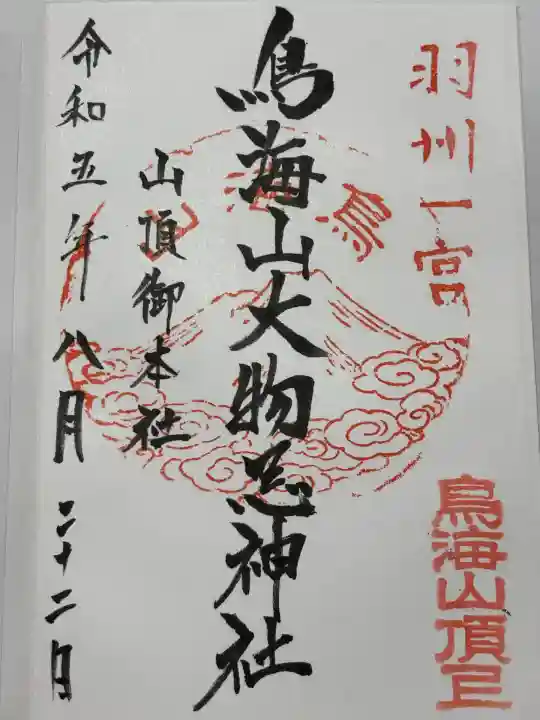 羽州一宮
鳥海山頂上
鳥
海
山
鳥海山大物忌神社
山頂御本社
令和五年八月二十二日